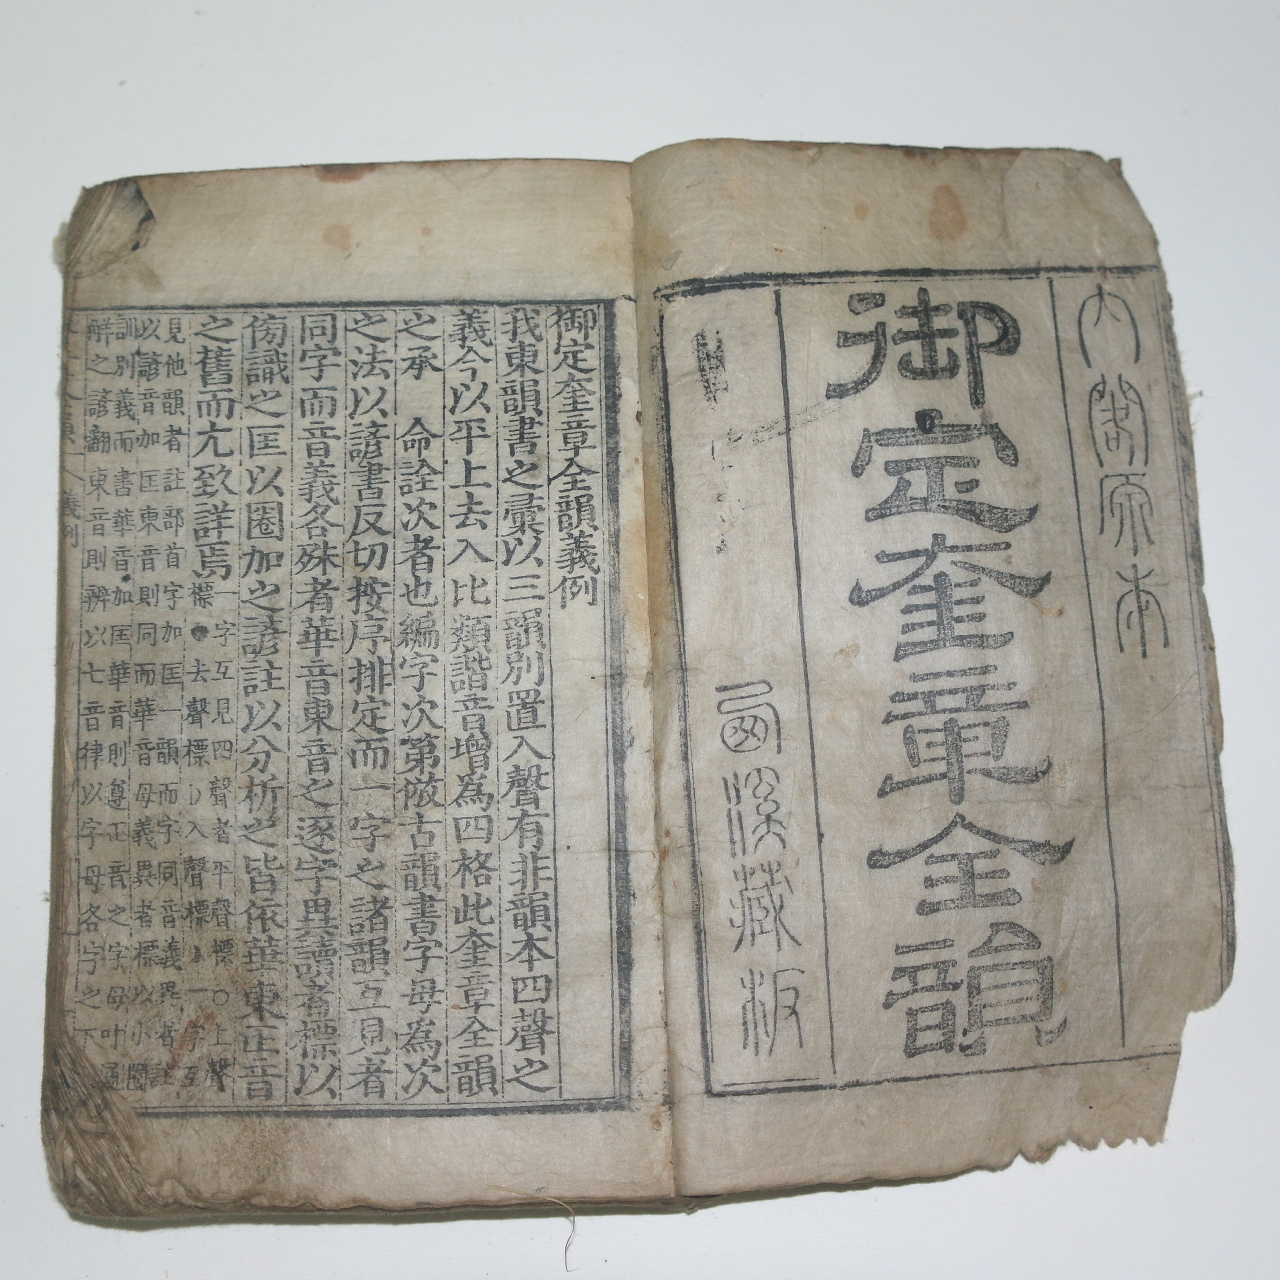 內閣原本
御定奎章全韻
溪藏板
御定奎章全韻義例
我東韻書之彙以三韻別置入聲有非韻本四聲之
義今以平上去入比類諧音增為四格此奎章全韻
之承 命詮次者也編字次第倣古韻書字母為次
之法以諺書反切按序排定而一字之諸韻互見者
同字而音義各殊者華音東音之逐字異讀者標以
傍識之匡以圈加之諺註以分析之皆依華東正音
之舊而尤致詳焉
標一字互見四聲者平聲標○上聲
去聲標 入聲標 一字互
見他韻者註部首字加匡一韻而字同音義異者註
以諺音加匡東音則同而華音母義異者標以小圈
訓別義而書華音加匡華音則尊正音之字母叶通
辨以七音律以字母各字之下
義例